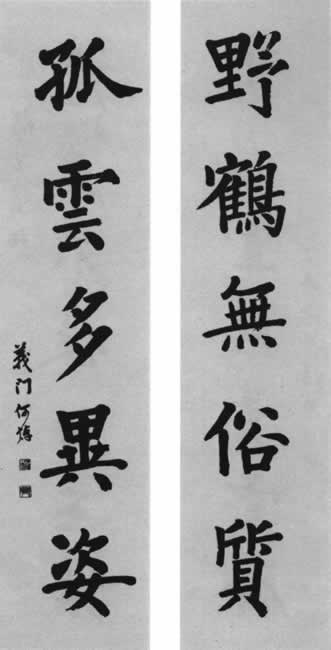 野鶴無俗質
孤雲多異姿
義门何焯